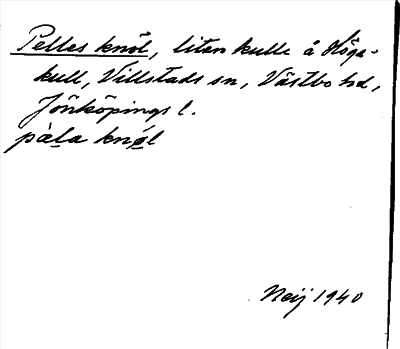 Pelles knöl, liten kulle å Höga-
kull, Villstads sn, Västbo hd,
Jönköpings l.
pàla knǿl
Neij 1940